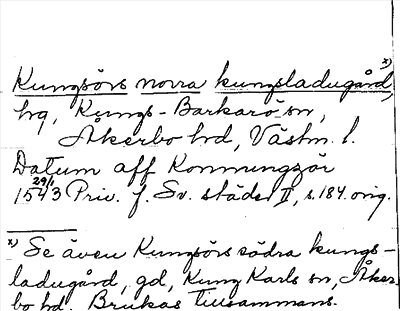 x)
Kungsörs norra kungsladugård,
hrg, Kungs-Barkarö sn,
Åkerbo hd, Västm. l.
Datum aff Konnungzör
29/1
1543 Priv. f. Sv. städer II, s. 184. orig.
x) Se även Kungsörs södra kungs-
ladugård, gd, Kung Karls sn, Åker-
bo hd. Brukas tillsammans.